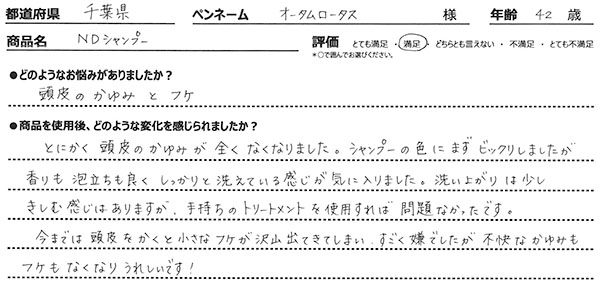 都道府県 千葉県 ペンネーム オータムロータス 様 年齢 42 歳
商品名 NDシャンプー 評価 とても満足 ・ 満足 ・ どちらとも言えない ・ 不満足 ・ とても不満足
*○で囲んでお選びください。
●どのようなお悩みがありましたか？
頭皮のかゆみ と フケ
●商品を使用後、どのような変化を感じられましたか？
とにかく 頭皮のかゆみが 全く なくなりました。シャンプーの色に まず ビックリしましたが
香りも 泡立ちも良く しっかりと 洗えている感じが気に入りました。洗い上がりは少し
きしむ感じはありますが、手持ちのトリートメントを使用すれば 問題なかったです。
今までは 頭皮をかくと小さなフケが沢山出てきてしまい、すごく嫌でしたが 不快なかゆみも
フケもなくなりうれしいです！